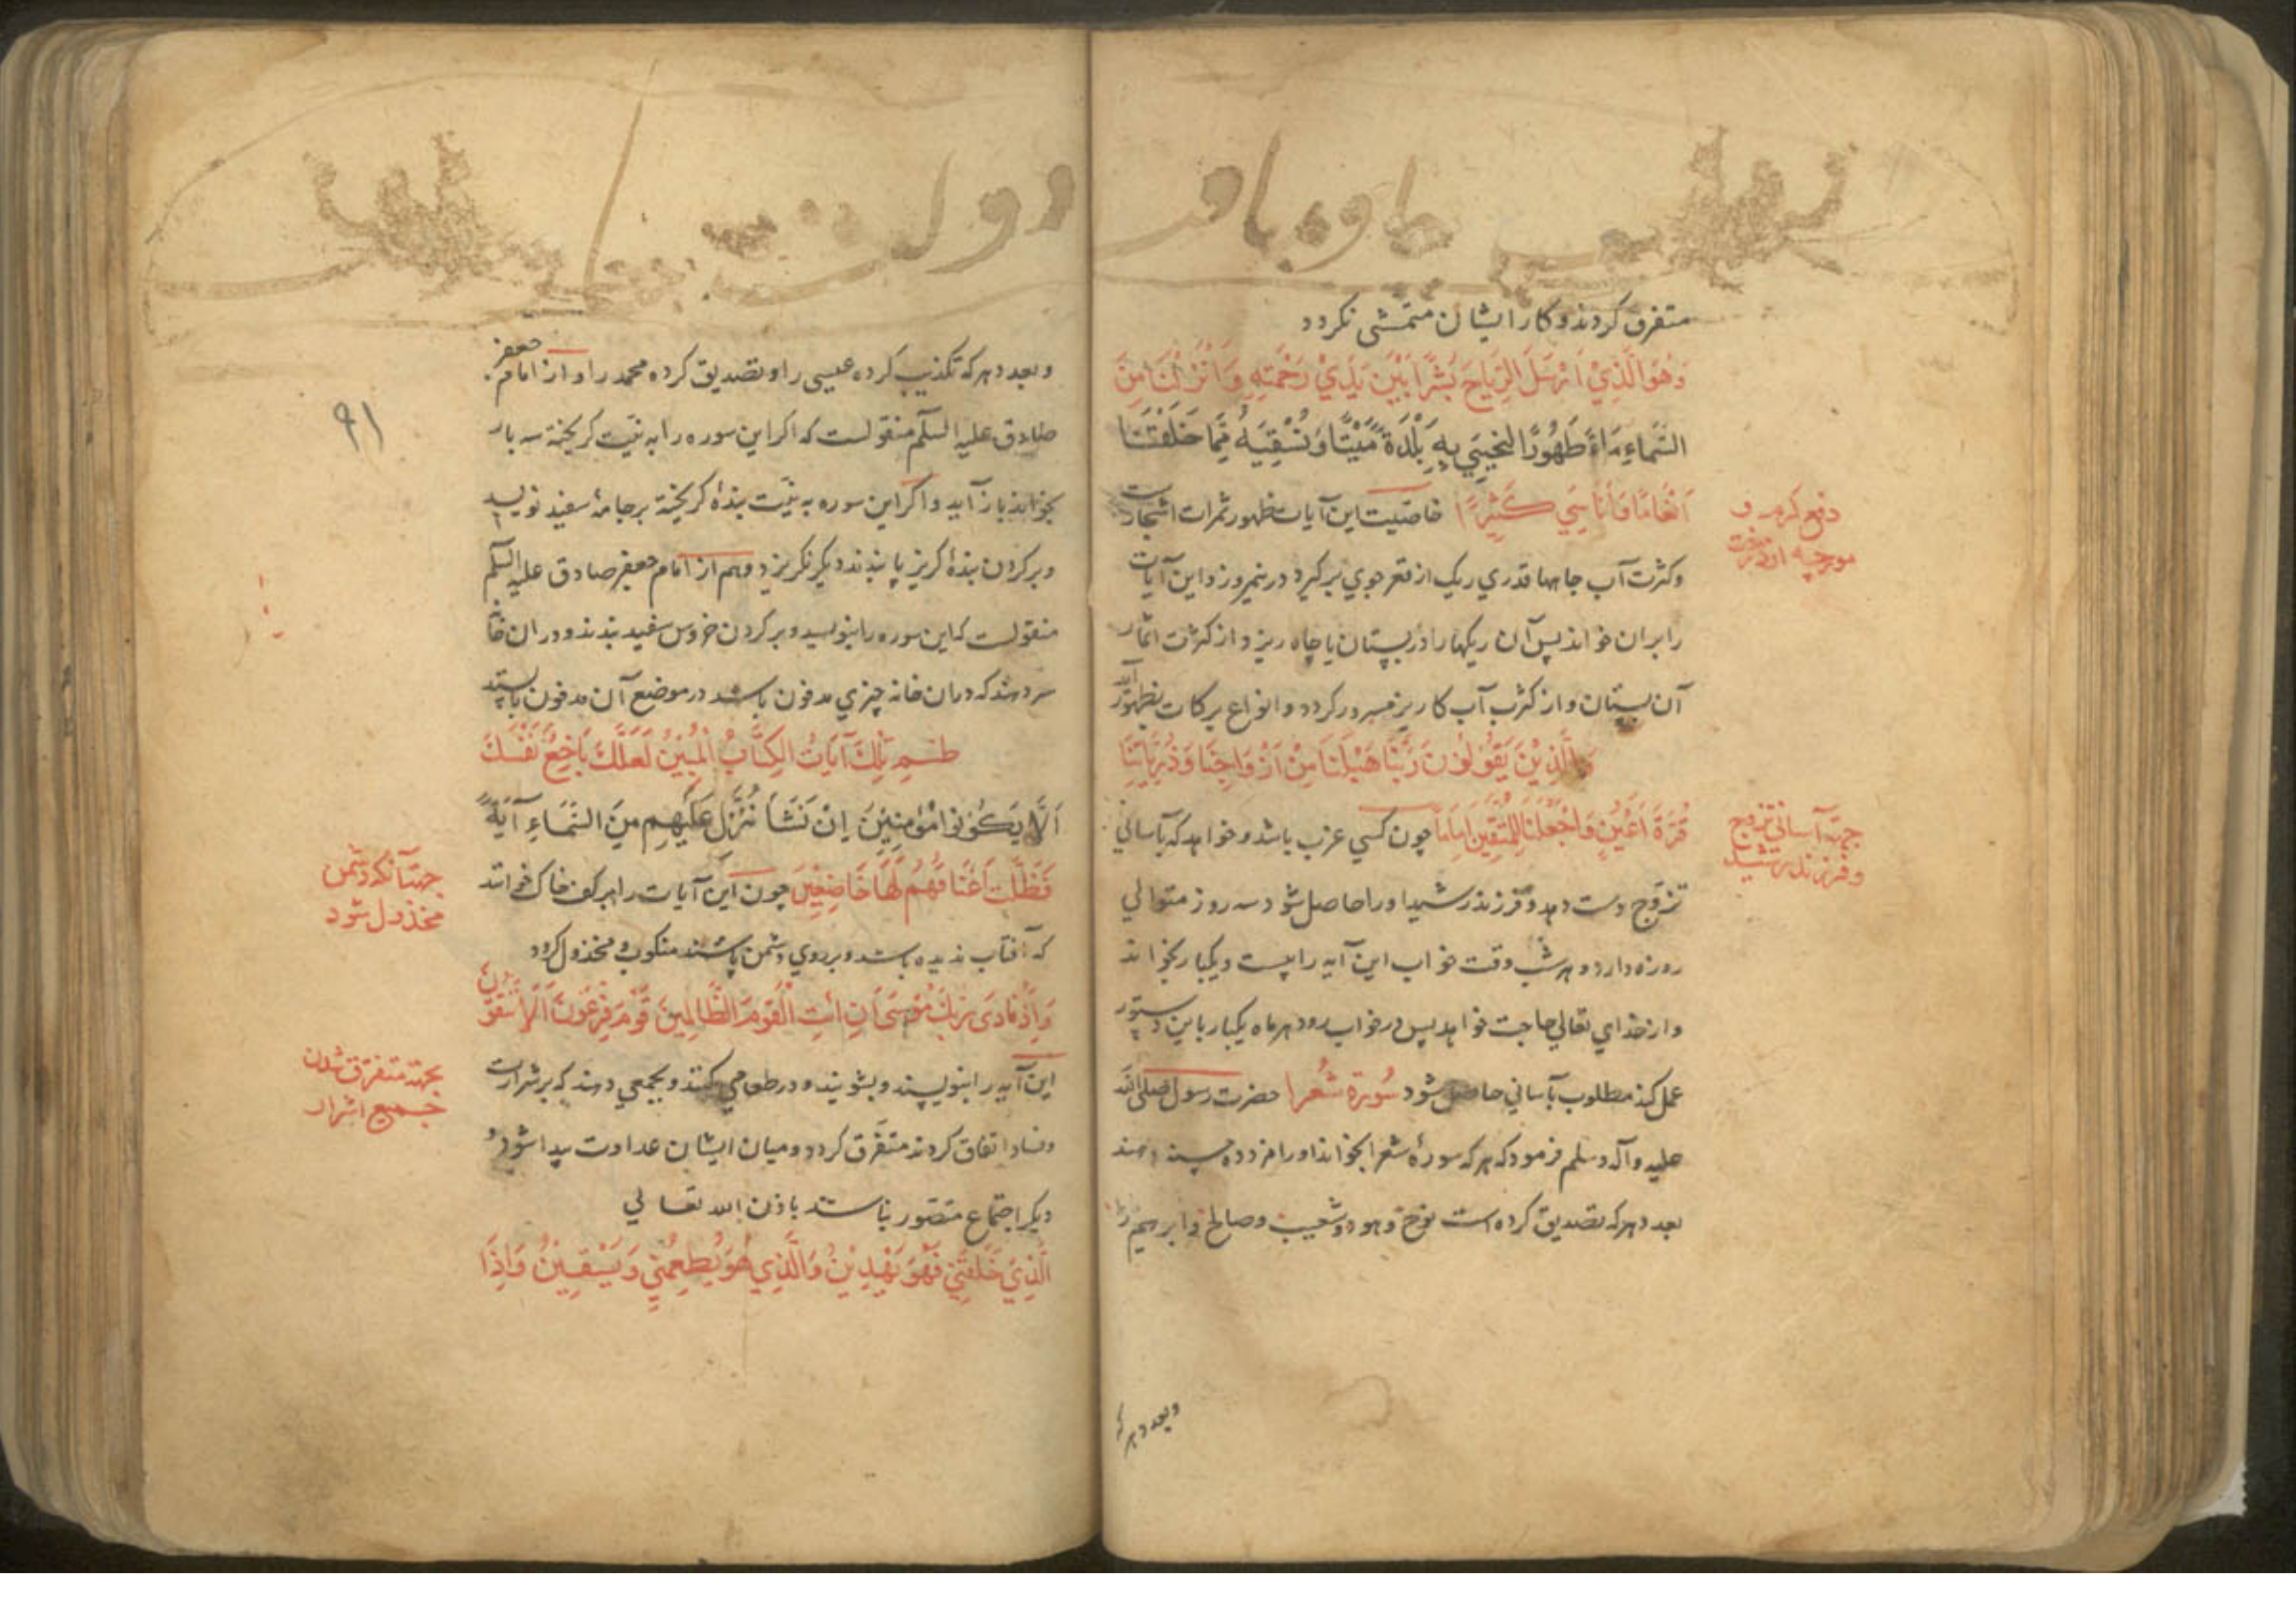 متفرق کردند و کار ایشان متمشی نکردد
وَهُوَ الَّذِيْ اَرْسَلَ الرِّيَاحَ بُشْرًا بَيْنَ يَدَيْ رَحْمَتِهِ وَاَنْزَلْنَا مِنَ
السَّمَاءِ مَاءً طَهُورًا لِنُحْيِيَ بِهِ بَلْدَةً مَيْتًا وَنُسْقِيَهُ مِمَّا خَلَقْنَا
اَنْعَامًا وَاَنَاسِيَ كَثِيْرًا خاصیت این آیات ظهور ثمرات اشجارست
وکثرت آب جاهها قدری ریک از قعر جوی برکیرد در نیمروز و این آیات
را بران خواند پس آن ریکها را در بستان یا چاه ریزد از کثرت اثمار
آن بستان و از کثرت آب کاریز مسرور کردد و انواع برکات بظهور آید
وَالَّذِيْنَ يَقُوْلُوْنَ رَبَّنَا هَبْ لَنَا مِنْ اَزْوَاجِنَا وَذُرِّيَّاتِنَا
قُرَّةَ اَعْيُنٍ وَاجْعَلْنَا لِلْمُتَّقِيْنَ اِمَامًا چون کسی عزب باشد و خواهد که بآسانی
تزوج دست دهد و فرزند رشید او را حاصل شود سه روز متوالی
روزه دارد و هر شب وقت خواب این آیه را بیست و یکبار بخواند
و از خدای تعالی حاجت خواهد پس در خواب رود هر ماه یکبار باین دستور
عمل کند مطلوب بآسانی حاصل شود سُورَة شُعَرا حضرت رسول صلی الله
علیه وآله وسلم فرمود که هر که سورهٔ شعرا بخواند او را مزد ده حسنه دهند
بعدد هر که تصدیق کرده است نوح و هود و شعیب و صالح و ابرهیم را
دفع کرم و
مورچه از درخت
جهة آسانی تزوج
و فرزند رشید
وبعدد هر که
وبعدد هر که تکذیب کرده عیسی را و تصدیق کرده محمد را و از امام جعفر
صادق علیه السلم منقولست که اکر این سوره را به نیت کریخته سه بار
بخواند باز آید و اکر این سوره به نیت بندهٔ کریخته بر جامهٔ سفید نویسد
و بر کردن بندهٔ کریز پا بندند دیکر نکریزد و هم از امام جعفر صادق علیه السلم
منقولست که این سوره را بنویسد و بر کردن خروس سفید بندند و در ان خانه
سر دهند که در ان خانه چیزی مدفون باشد در موضع آن مدفون بایستد
طسم تِلْكَ آيَاتُ الْكِتَابِ الْمُبِيْنِ لَعَلَّكَ بَاخِعٌ نَفْسَكَ
اَلَّا يَكُوْنُوا مُؤْمِنِيْنَ اِنْ نَشَأْ نُنَزِّلْ عَلَيْهِمْ مِنَ السَّمَاءِ آيَةً
فَظَلَّتْ اَعْنَاقُهُمْ لَهَا خَاضِعِيْنَ چون این آیات را بر کف خاک خوانند
که آفتاب ندیده باشد و بر روی دشمن پاشند منکوب و مخذول کردد
وَاِذْ نَادَى رَبُّكَ مُوْسَى اَنِ ائْتِ الْقَوْمَ الظَّالِمِيْنَ قَوْمَ فِرْعَوْنَ اَلَا يَتَّقُوْنَ
این آیه را بنویسند و بشویند و در طعامی کنند و بجمعی دهند که بر شرارت
و فساد اتفاق کردند متفرق کردد و میان ایشان عداوت پیدا شود و
دیکر اجتماع متصور نباشد باذن الله تعالی
الَّذِيْ خَلَقَنِيْ فَهُوَ يَهْدِيْنِ وَالَّذِي هُوَ يُطْعِمُنِي وَيَسْقِيْنِ وَاِذَا
۹۱
جهة آنکه دشمن
مخذول شود
بجهة متفرق شدن
جمیع اشرار